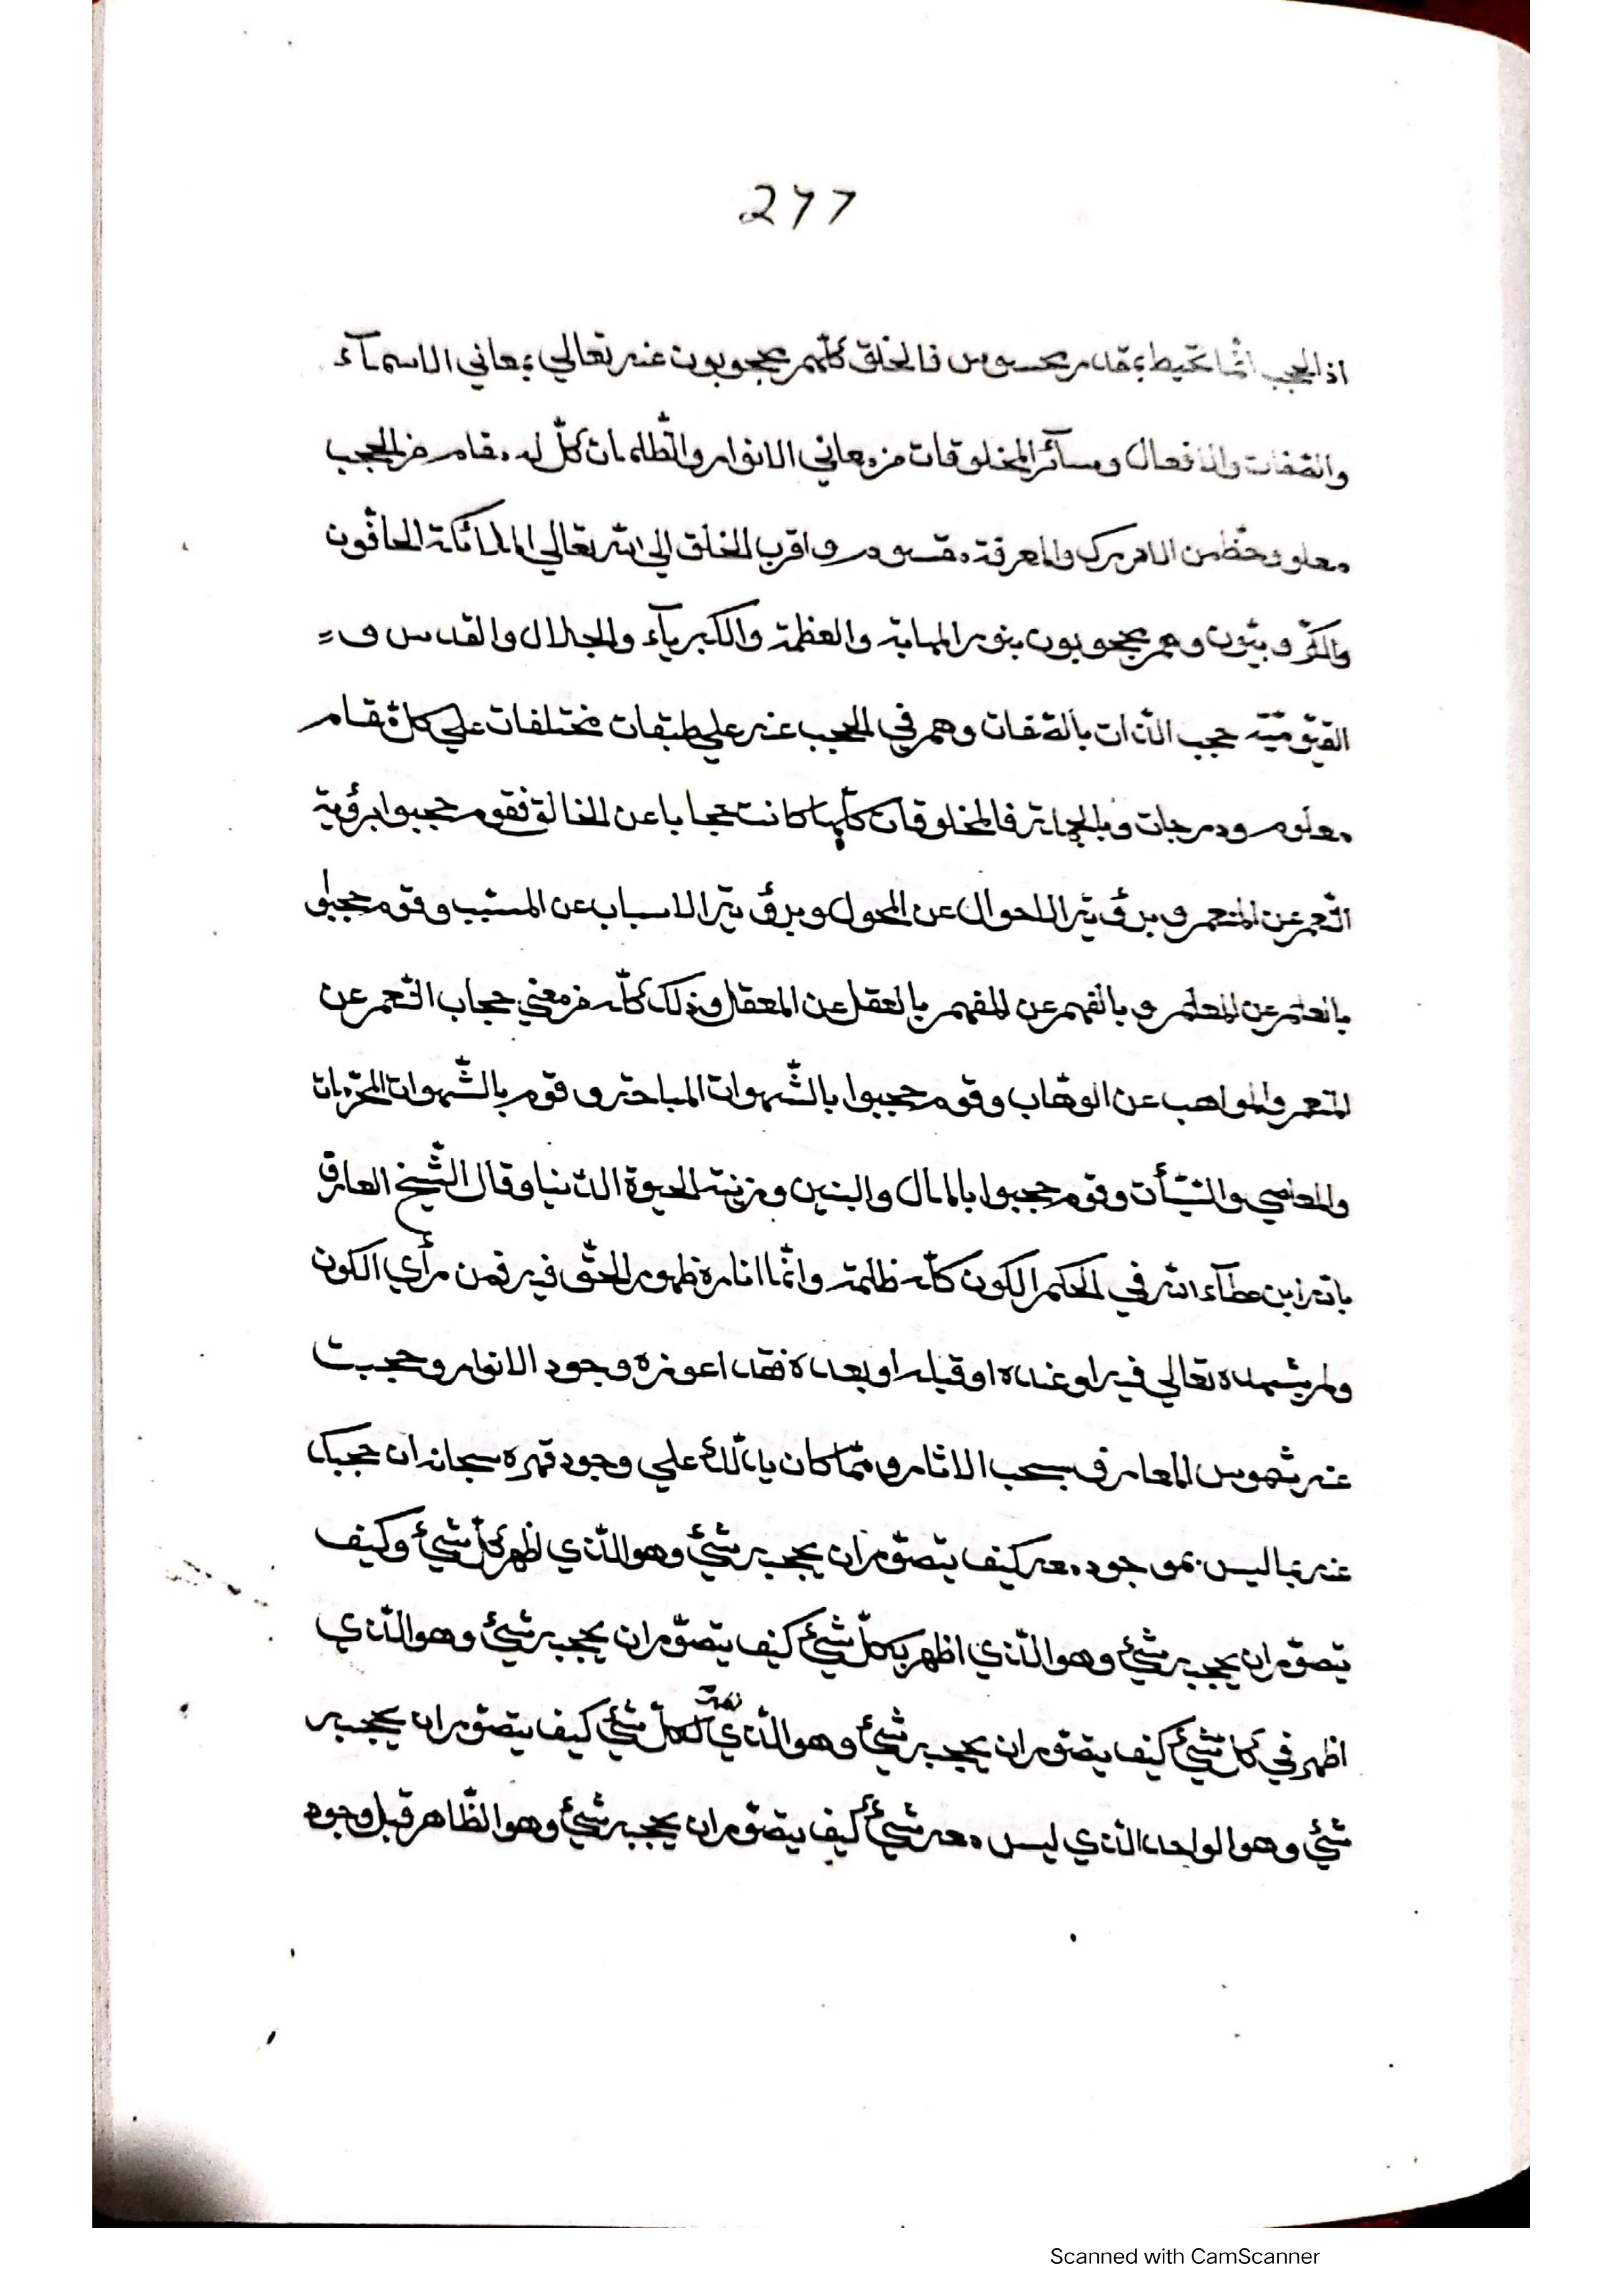 277
اذ الحجب انّما تحيط بمقدر محسوس فالخلق كلّهم محجوبون عنه تعالي بمعاني الاسمآء
والصّفات والافعال وسآئر المخلوقات من معاني الانوار والظّلمات كلّ له مقام من الحجب
معلوم وحظّ من الادراك والمعرفة مقسوم و اقرب الخلق الي الله تعالي الملائكة الحافّون
والكرّوبيّون وهم محجوبون بنور المهابة والعظمة والكبريآء والجلال والقدس و
القيّوميّة حجب الذّات بالصّفات وهم في الحجب عنه علي طبقات مختلفات علي كل مقام
معلوم ودرجات وبالجملة فالمخلوقات كلّها كانت حجابا عن الخالق فقوم حجبوا برؤية
النّعم عن المنعم و برؤية الاحوال عن المحول و برؤية الاسباب عن المسبّب وقوم حجبوا
بالعلم عن المعلم و بالفهم عن المفهم بالعقل عن المعقل وذلك كلّه من معني حجاب النّعم عن
المنعم والمواهب عن الوهّاب وقوم حجبوا بالشّهوات المباحة و قوم بالشّهوات المحرّمات
والمعاصي والسّيّأت وقوم حجبوا بالمال والبنين وزينة الحيوة الدّنيا وقال الشّيخ العارف
بالله ابن عطآء الله في الحكم الكون كلّه ظلمة وانّما اناره ظهور الحقّ فيه فمن رأي الكون
ولم يشهده تعالي فيه او عنده او قبله او بعده فقد اعوزه وجود الانوار وحجبت
عنه شموس المعارف بسحب الاثار و ممّا كان يدلّك علي وجود قهره سبحانه ان حجبك
عنه بما ليس بموجود معه كيف يتصوّر ان يحجبه شيئ وهو الّذي اظهر كلّ شيئ وكيف
يتصوّر ان يحجبه شيئ وهو الّذي اظهر بكلّ شيئ كيف يتصوّر ان يحجبه شيئ وهو الّذي
اظهر في كل شيئ كيف يتصوّر ان يحجبه شيئ وهو الّذي ظهر لكلّ شيئ كيف يتصوّر ان يحجبه
شيئ وهو الواحد الّذي ليس معه شيئ كيف يتصوّر ان يحجبه شيئ وهو الظّاهر قبل وجود
Scanned with CamScanner